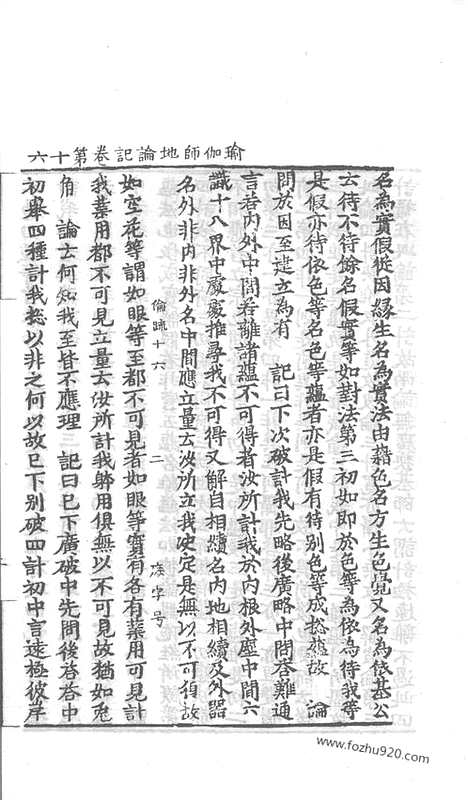 瑜伽師地論記卷第十六
名為實假從因緣生名為實法由藉色名方生色覺又名為依基公
云待不待餘名假實等如對法第三初如即於色等為依為待我等
是假亦待依色等名色等蘊者亦是假有待別色等成揔蘊故 論
問於因至建立為有 記曰下次破計我先略後廣略中問荅難通
言若內外中間若離諸蘊不可得者汝所計我於內根外塵中間六
識十八界中處處推尋我不可得又解自相續名內地相續及外器
名外非內非外名中間應立量云汝所立我決定是無以不可得故
倫䟽十六 二 庱字号
如空花等謂如眼等至都不可見者如眼等實有各有業用可見計
我業用都不可見立量云汝所計我躰用俱無以不可見故猶如兎
角 論云何知我至皆不應理 記曰已下廣破中先問後荅荅中
初舉四種計我揔以非之何以故已下別破四計初中言速極彼岸
www.fozhu920.com